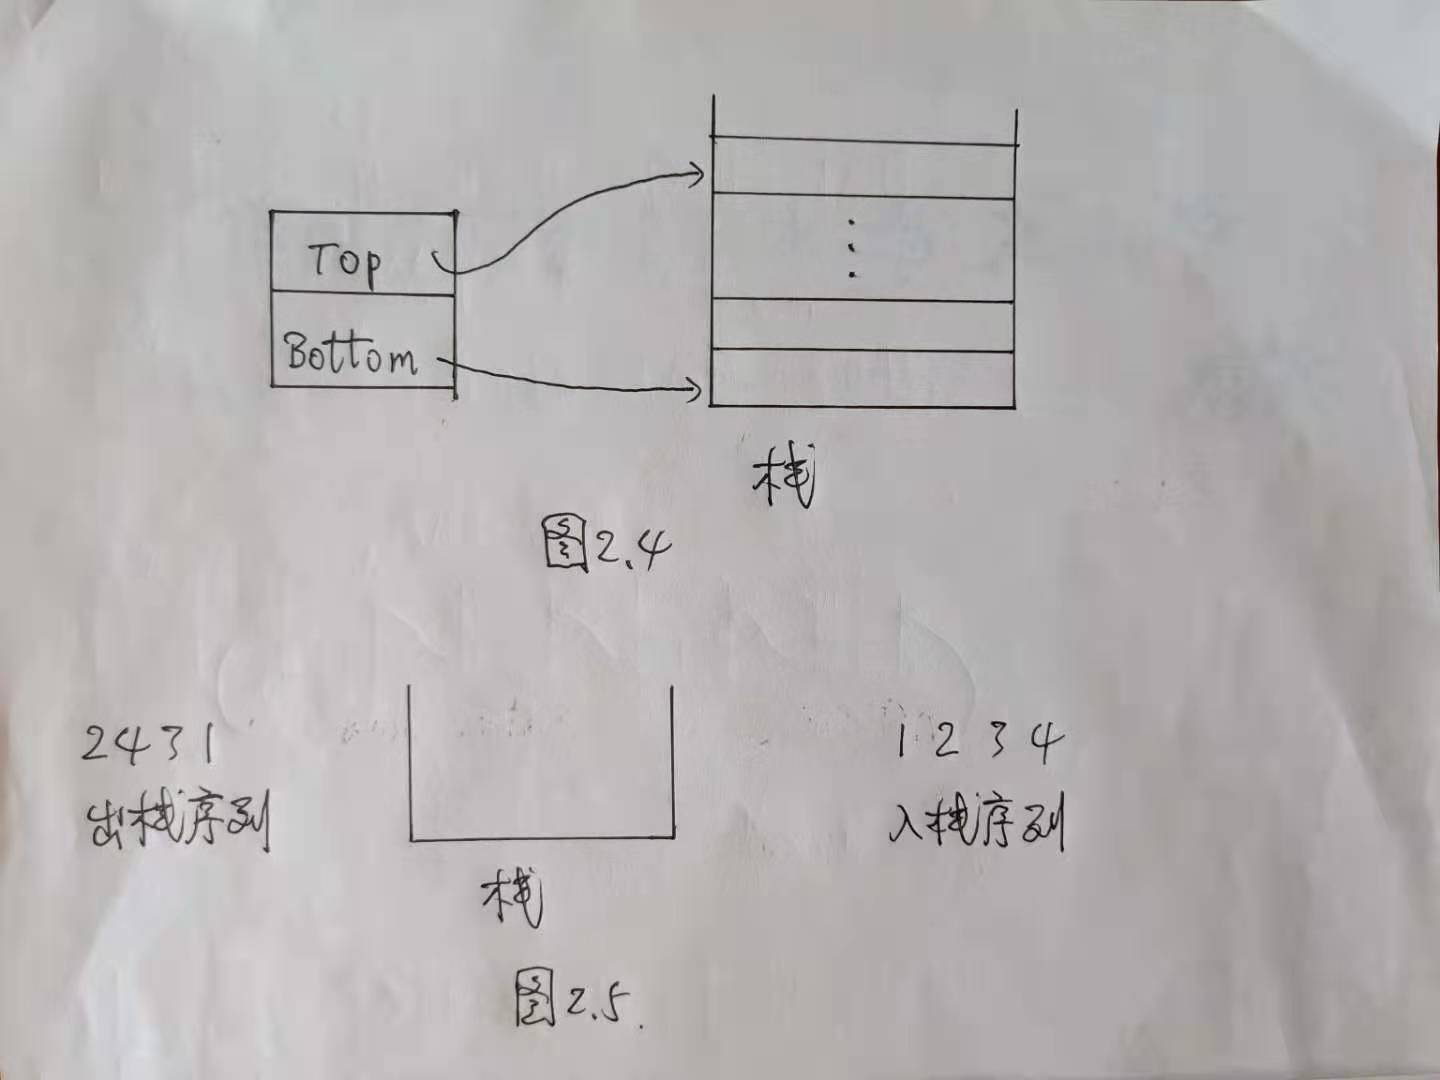 Top
Bottom
栈
图2.4
2431
出栈序列
1 2 3 4
入栈序列
栈
图2.5.